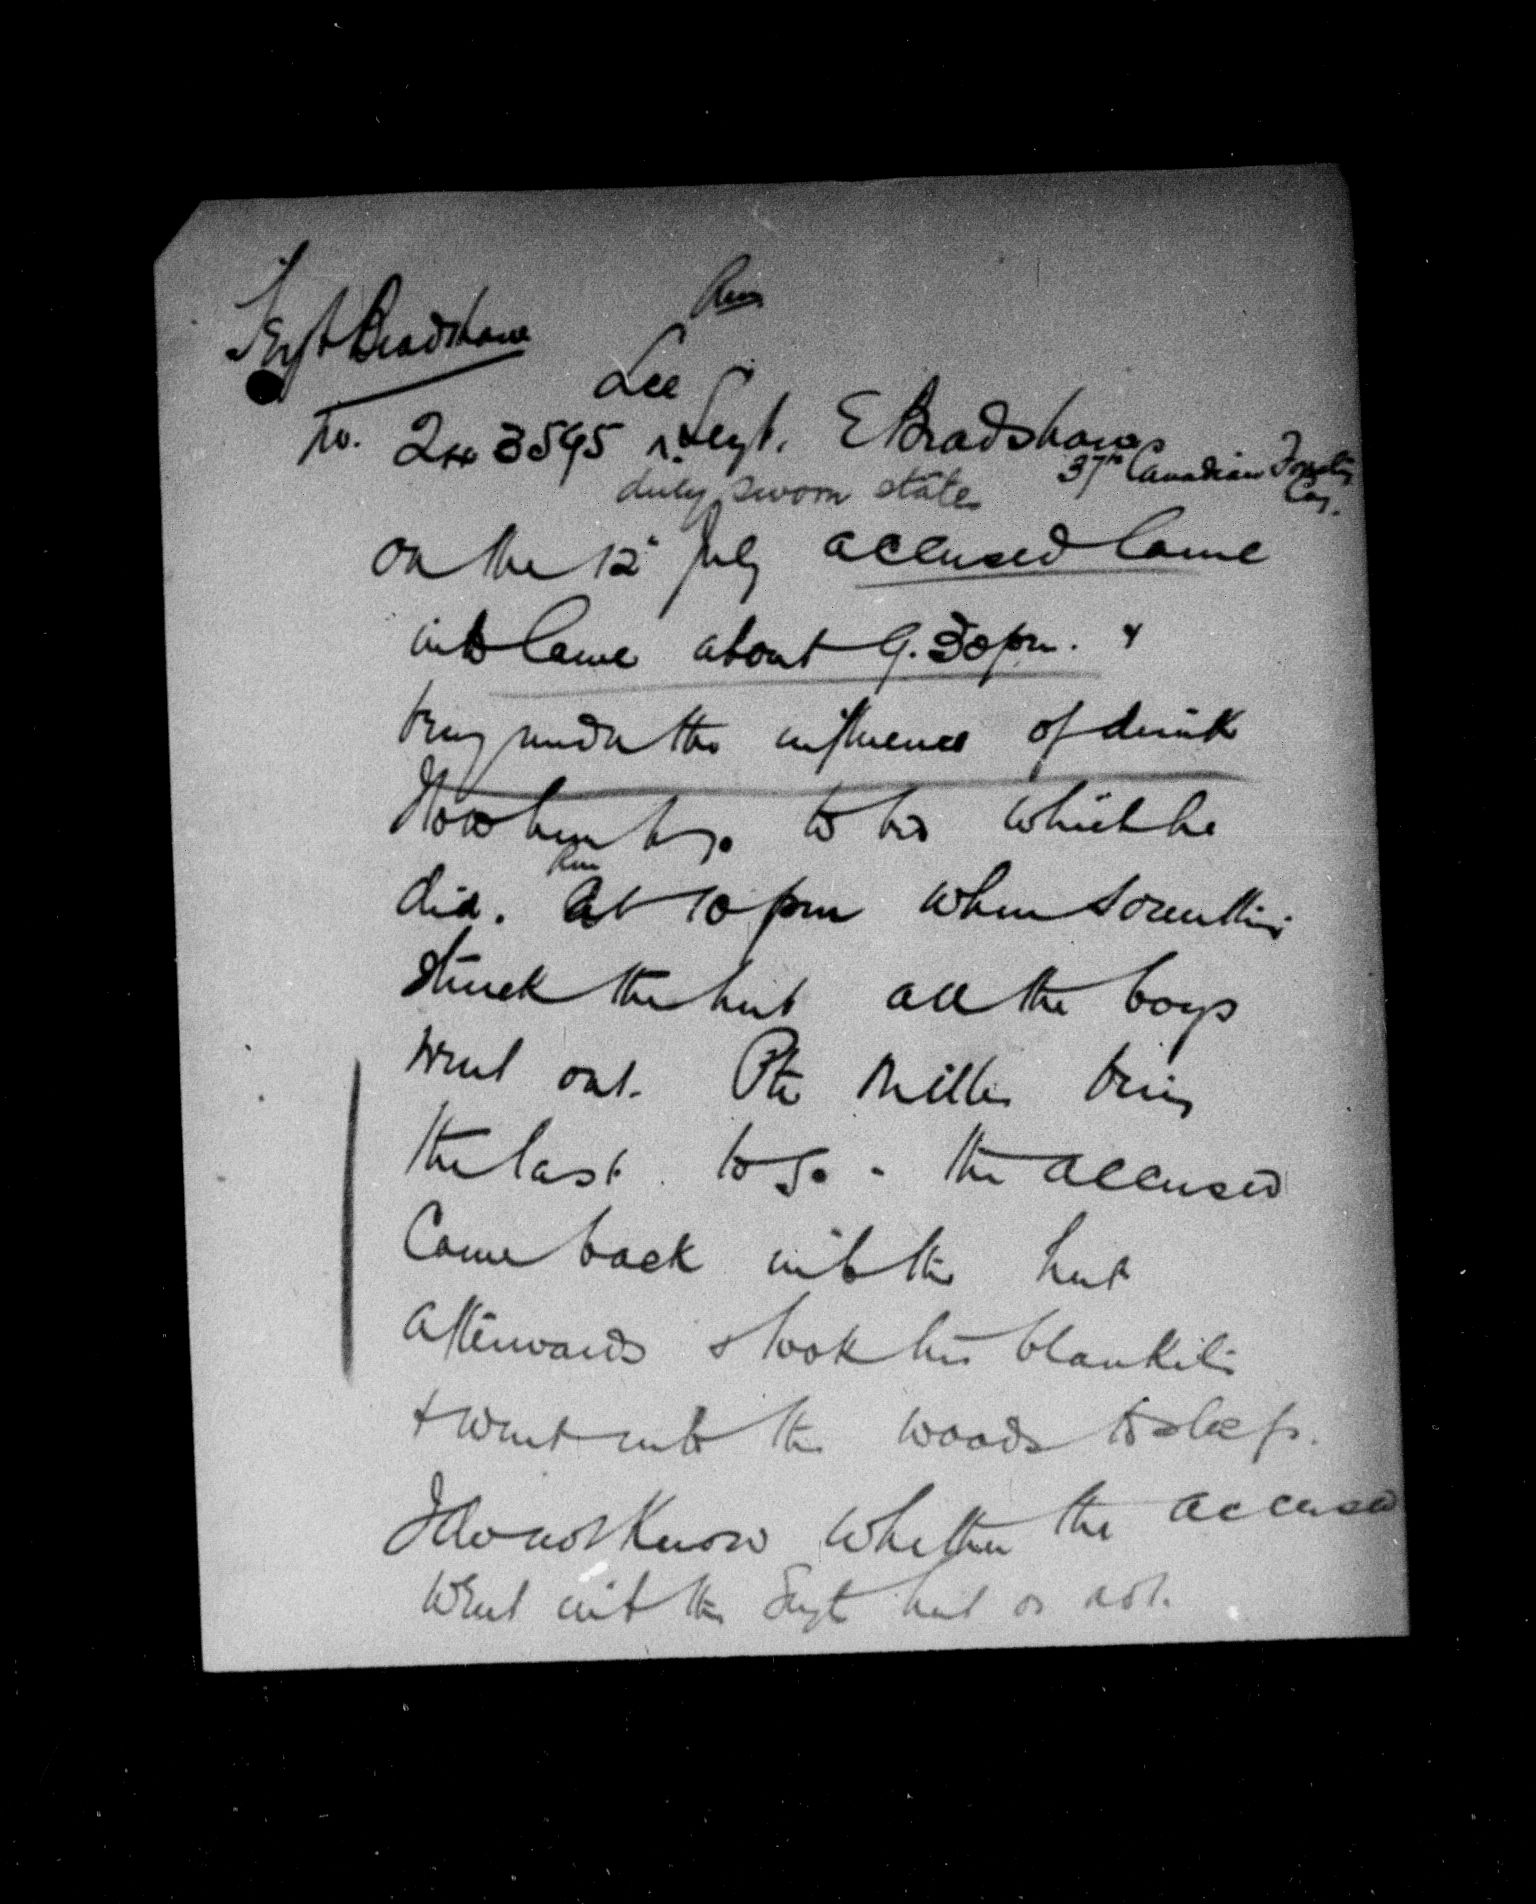 Sergt Bradshaw
Lce
No. 243595 ^ Sergt. E Bradshaw
37th Canadian Forestry
Coy.
duly sworn states
On the 12th July accused came
into Camp about 9.30 pm. &
being under the influence of drink
I told him to go to bed which he
did. At 10 pm when something
struck the hut all the boys
went out. Pte Miller being
the last to go - the accused
Came back into the hut
afterwards & took his blankets
& went into the woods to sleep.
I do not know whether the accused
went into the Sergt hut or not.